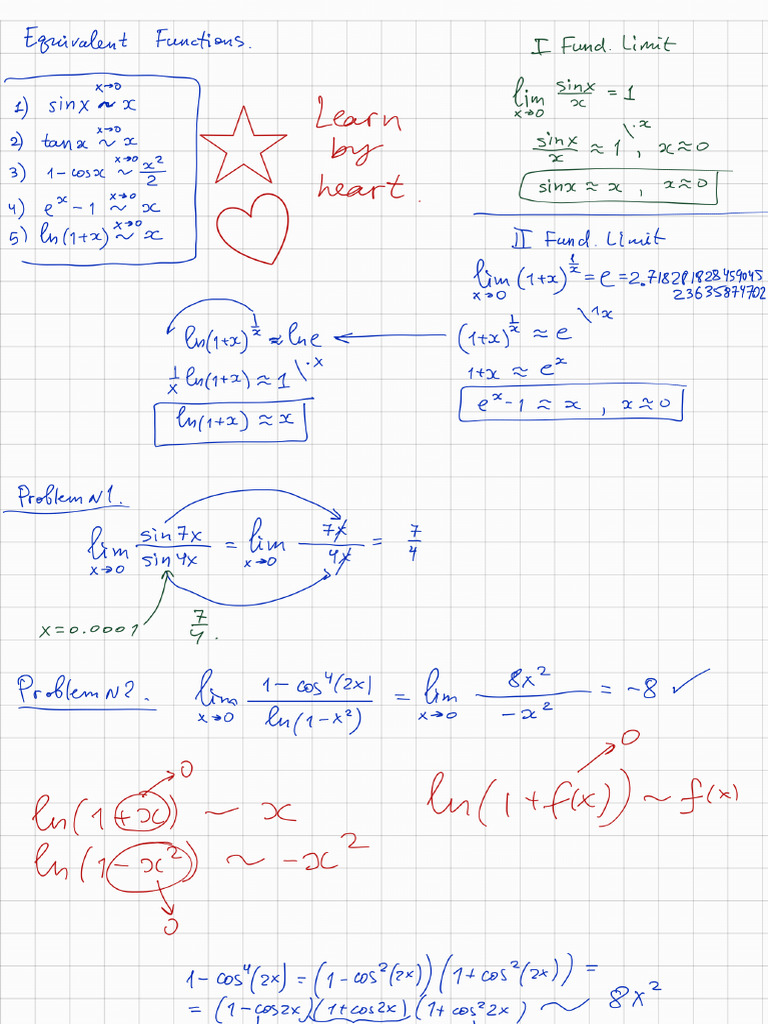 Equivalent Functions.
1) sinx ~ x (x→0)
2) tanx ~ x (x→0)
3) 1-cosx ~ x²/2 (x→0)
4) eˣ-1 ~ x (x→0)
5) ln(1+x) ~ x (x→0)
Learn
by
heart.
I Fund. Limit
lim x→0 sinx/x = 1
sinx/x ≈ 1 \·x , x≈0
sinx ≈ x , x≈0
II Fund. Limit
lim x→0 (1+x)^(1/x) = e = 2.718281828459045
23635874702
(1+x)^(1/x) ≈ e \^x
1+x ≈ eˣ
eˣ-1 ≈ x , x≈0
ln(1+x)^(1/x) ≈ lne
1/x ln(1+x) ≈ 1 \·x
ln(1+x) ≈ x
Problem N1.
lim x→0 sin7x/sin4x = lim x→0 7x/4x = 7/4
x=0.0001 7/4.
Problem N2. lim x→0 (1-cos⁴(2x))/ln(1-x²) = lim x→0 8x²/-x² = -8 ✓
0
ln(1+x) ~ x
ln(1-x²) ~ -x²
0
0
ln(1+f(x)) ~ f(x)
1-cos⁴(2x) = (1-cos²(2x))(1+cos²(2x)) =
= (1-cos2x)(1+cos2x)(1+cos²2x) ~ 8x²